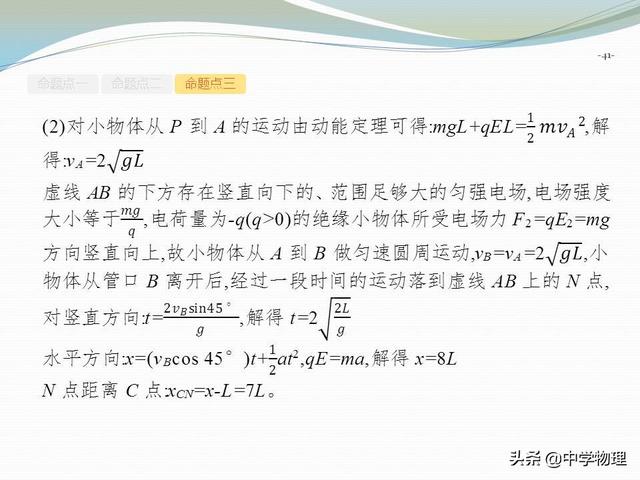 -41-
命题点一 命题点二 命题点三
(2)对小物体从 P 到 A 的运动由动能定理可得:mgL+qEL=\frac{1}{2}mv_A^2,解
得:v_A=2\sqrt{gL}
虚线 AB 的下方存在竖直向下的、范围足够大的匀强电场,电场强度
大小等于\frac{mg}{q},电荷量为-q(q>0)的绝缘小物体所受电场力 F_2=qE_2=mg
方向竖直向上,故小物体从 A 到 B 做匀速圆周运动,v_B=v_A=2\sqrt{gL},小
物体从管口 B 离开后,经过一段时间的运动落到虚线 AB 上的 N 点,
对竖直方向:t=\frac{2v_B\sin45°}{g},解得 t=2\sqrt{\frac{2L}{g}}
水平方向:x=(v_Bcos 45°)t+\frac{1}{2}at^2,qE=ma,解得 x=8L
N 点距离 C 点:x_{CN}=x-L=7L。
头条 @中学物理